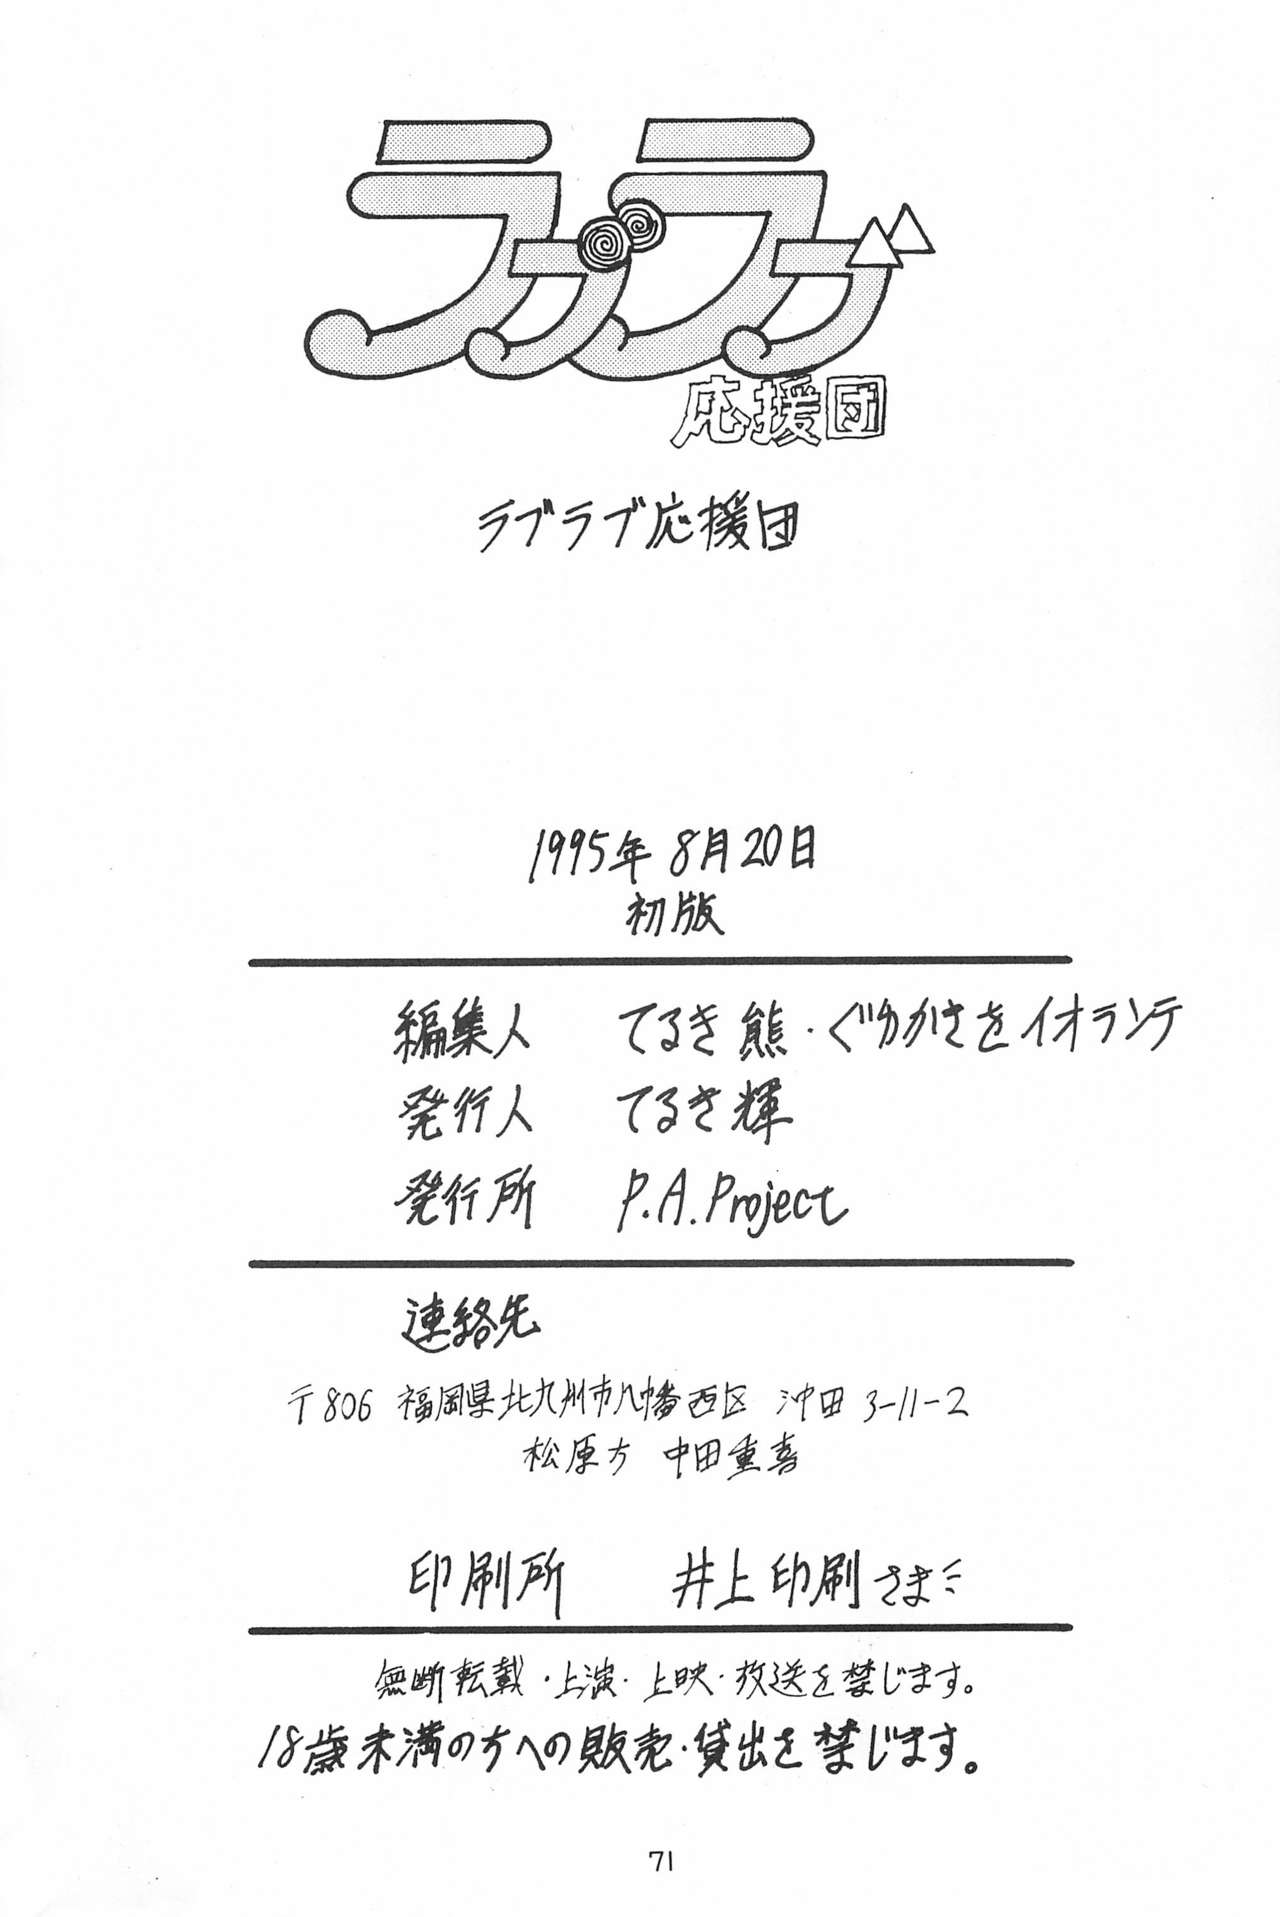 ラブラブ
応援団
ラブラブ応援団
1995年8月20日
初版
編集人 てるき熊・ぐゆかさをイオランテ
発行人 てるき輝
発行所 P.A.Project
連絡先
〒806 福岡県北九州市八幡西区 沖田3-11-2
松原方 中田重喜
印刷所 井上印刷さま
無断転載・上演・上映・放送を禁じます。
18歳未満の方への販売・貸出を禁じます。
71